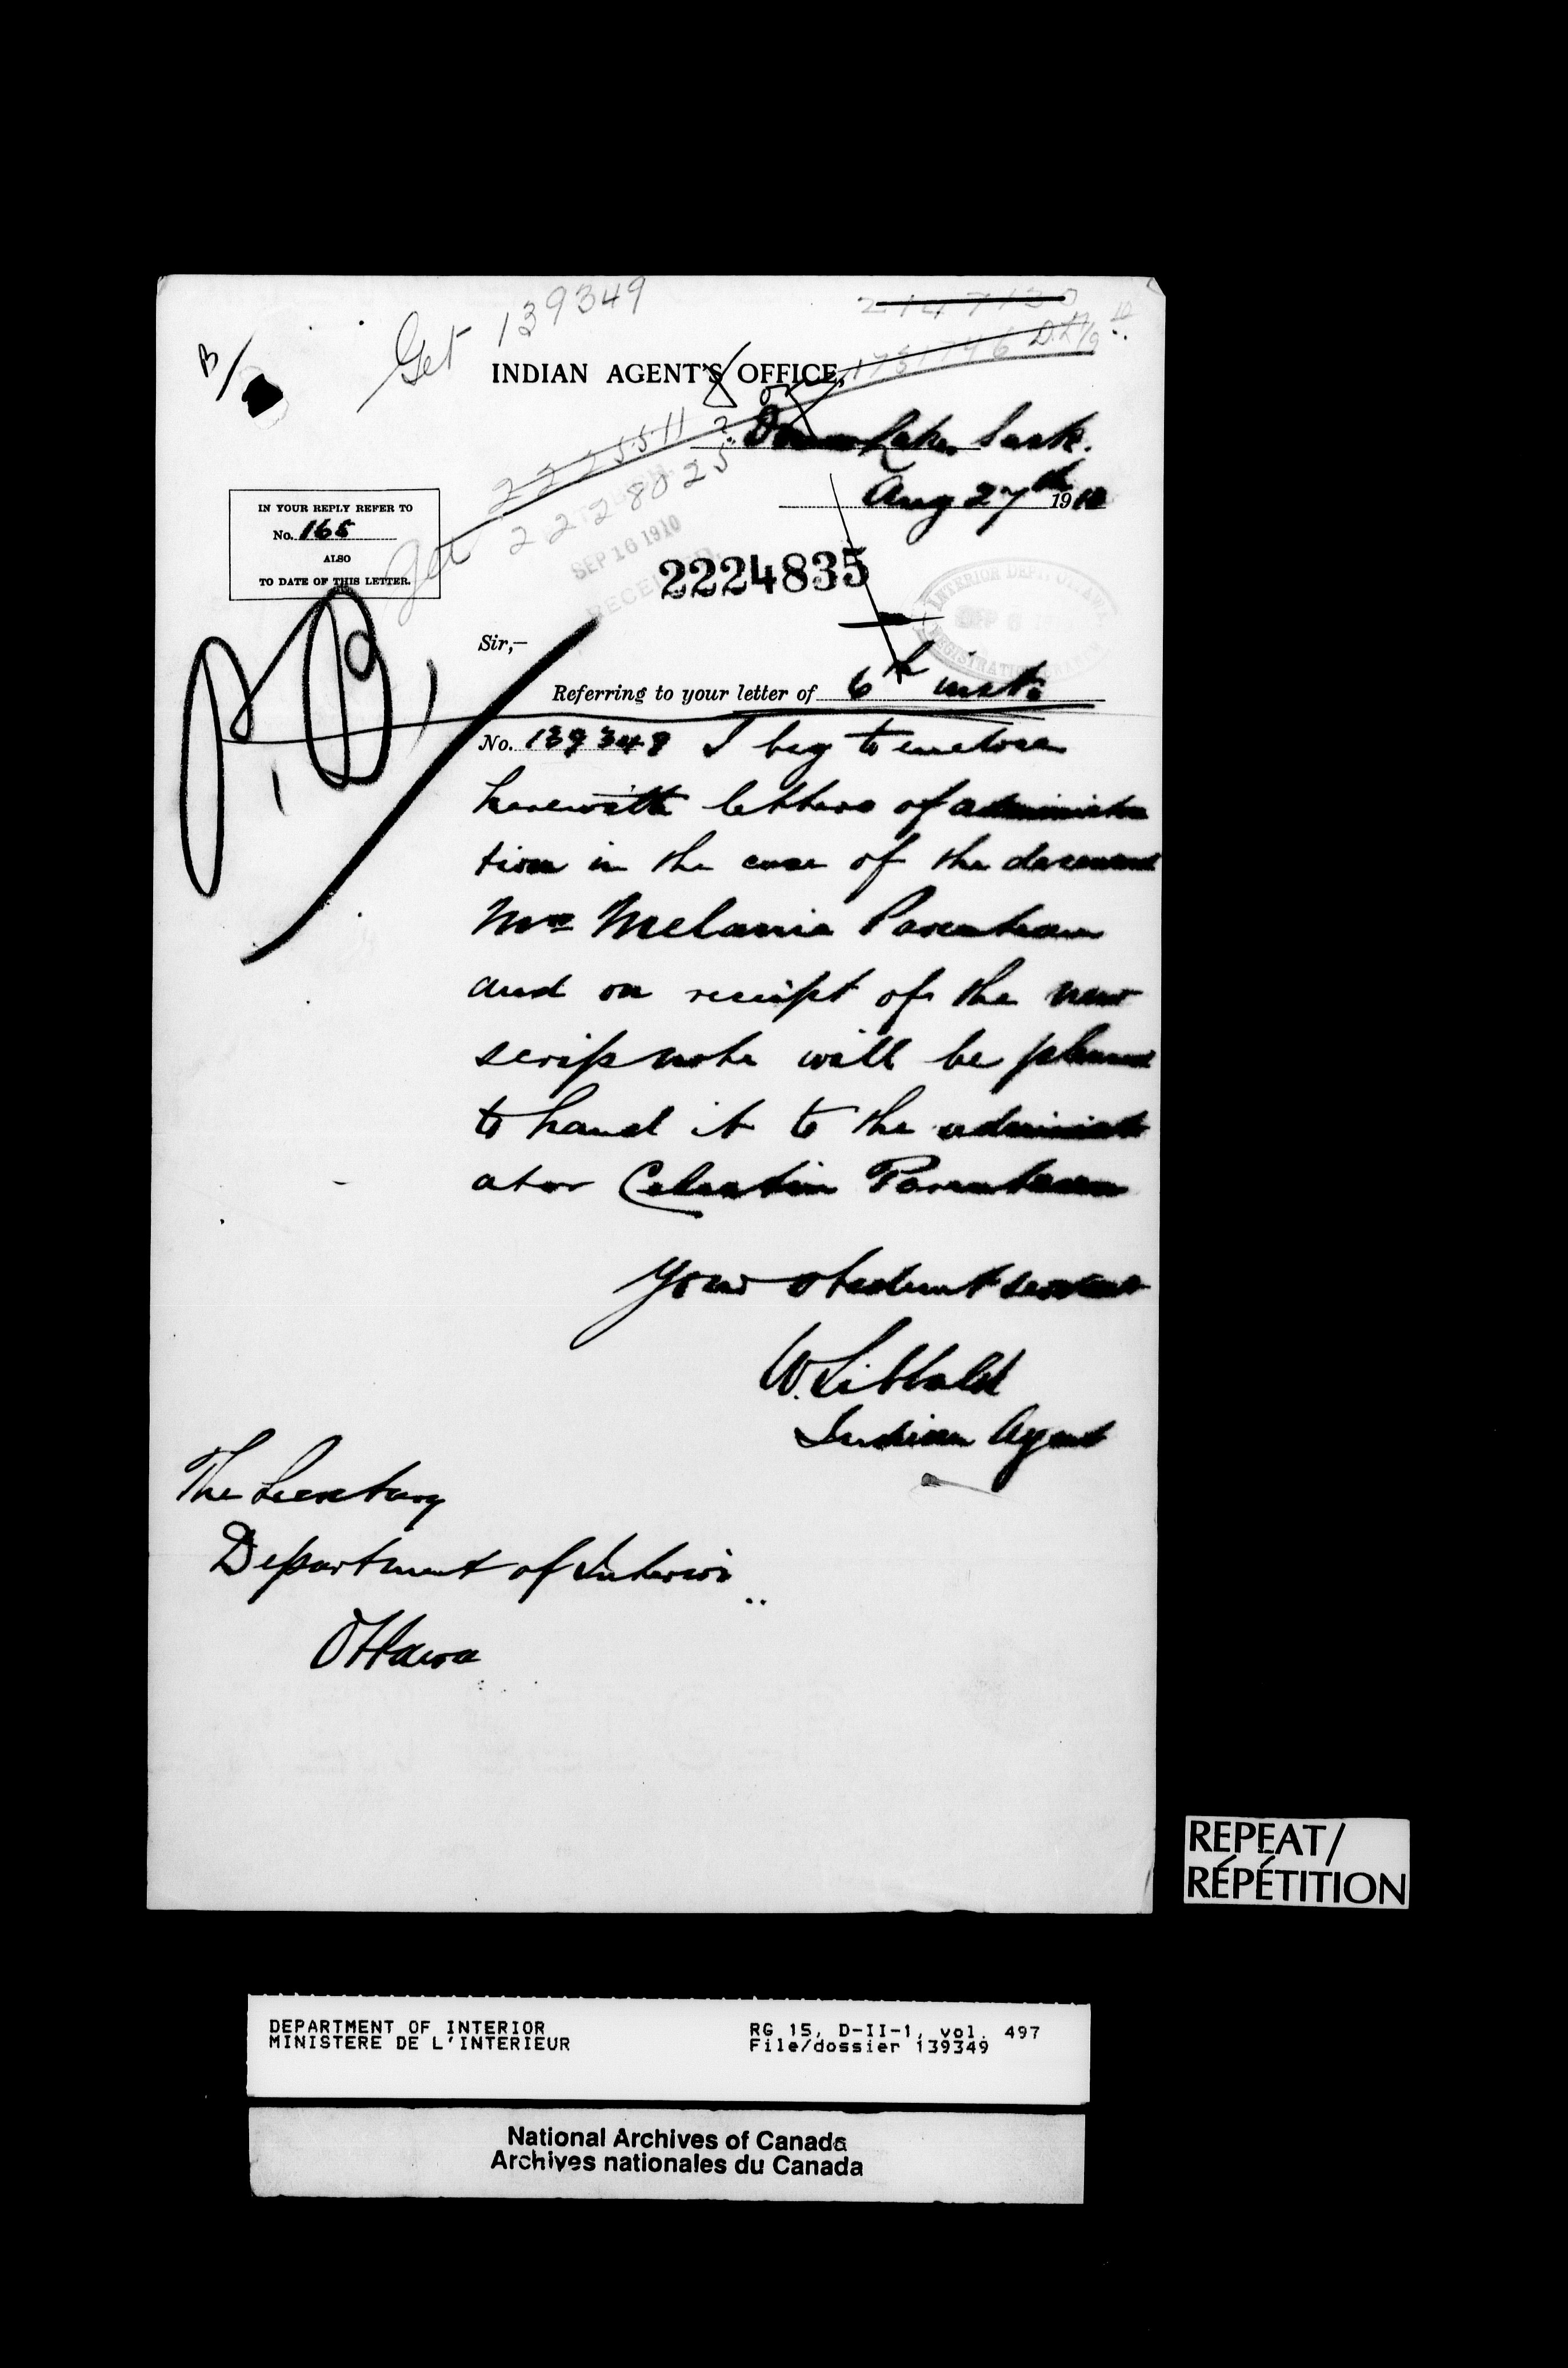 Get 139349
2147130
B/
1731746 D.L. 7/9 10
INDIAN AGENT'S OFFICE,
2225511
Lake, Sask.
Get 2228025
Aug 27th 1910
IN YOUR REPLY REFER TO
No. 165
ALSO
TO DATE OF THIS LETTER.
SEP 16 1910
RECEIVED
2224835
INTERIOR DEPT. OTTAWA
SEP 6
REGISTRATION BRANCH
Sir,—
Referring to your letter of 6th inst.
No. 139349 I beg to enclose
herewith letters of administra
tion in the case of the deceased
Mrs Melanie Parenteau
and on receipt of the new
scrip note will be pleased
to hand it to the administr
ator Celestin Parenteau
Your obedient servant
W. Sibbald
Indian Agent
The Secretary
Department of Interior
Ottawa
REPEAT/
RÉPÉTITION
DEPARTMENT OF INTERIOR RG 15, D-II-1, vol. 497
MINISTERE DE L'INTERIEUR File/dossier 139349
National Archives of Canada
Archives nationales du Canada